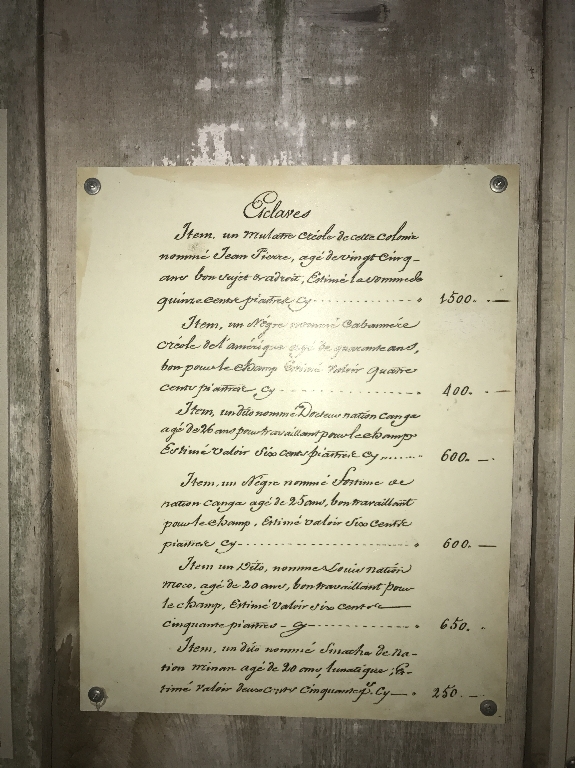 Esclaves
Item, un mulatre créole de cette Colonie
nommé Jean Pierre, agé de vingt Cinq-
ans bon sujet & adroit, Estimé la somme de
quinze Cents piastres Cy 1500. —
Item, un Négre nommé Cabannére
créole de l'amérique agé de quarante ans,
bon pour le champ Estimé Valoir quatre
cents piastres Cy 400. —
Item, un dito nommé Docteur nation canga
agé de 26 ans pour travaillant pour le champ
Estimé valoir Six cents piastres Cy 600. —
Item, un Négre nommé de
nation canga agé de 25 ans, bon travaillant
pour le champ, Estimé valoir Six Cents
piastres Cy 600. —
Item un Dito, nommé Louis nation
moco, agé de 20 ans, bon travaillant pour
le champ, Estimé Valoir six cents
cinquante piastres - Cy 650.
Item, un dito nommé de na-
tion minan agé de 20 ans, lunatique; Es-
timé valoir deux cents Cinquante p.s Cy 250. —